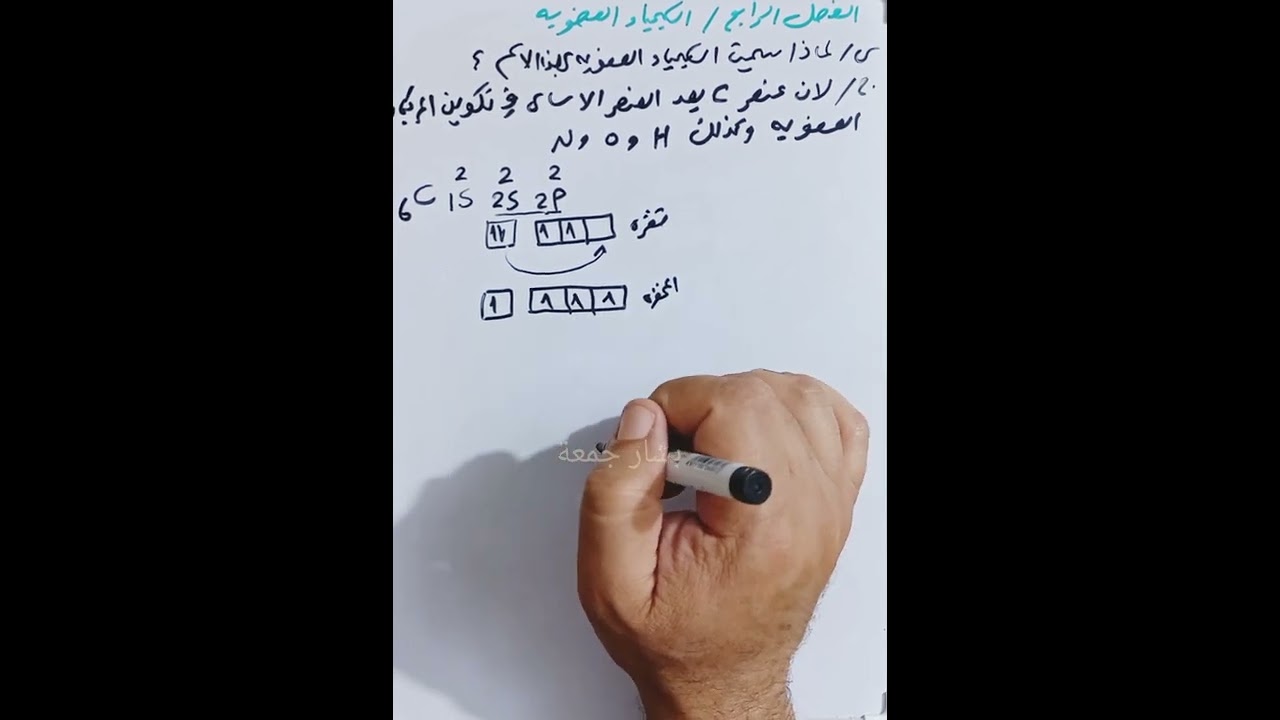 الفصل الرابع / الكيمياء العضويه
س/ لماذا سميت الكيمياء العضويه بهذا الاسم ؟
ج/ لان عنصر C يعد العنصر الاساسي في تكوين المركبات
العضويه وكذلك H و O و N
2 2 2
6C 1S 2S 2P
1⇂ 1 1 مستقره
1 1 1 1 المحفزه
بشار جمعة